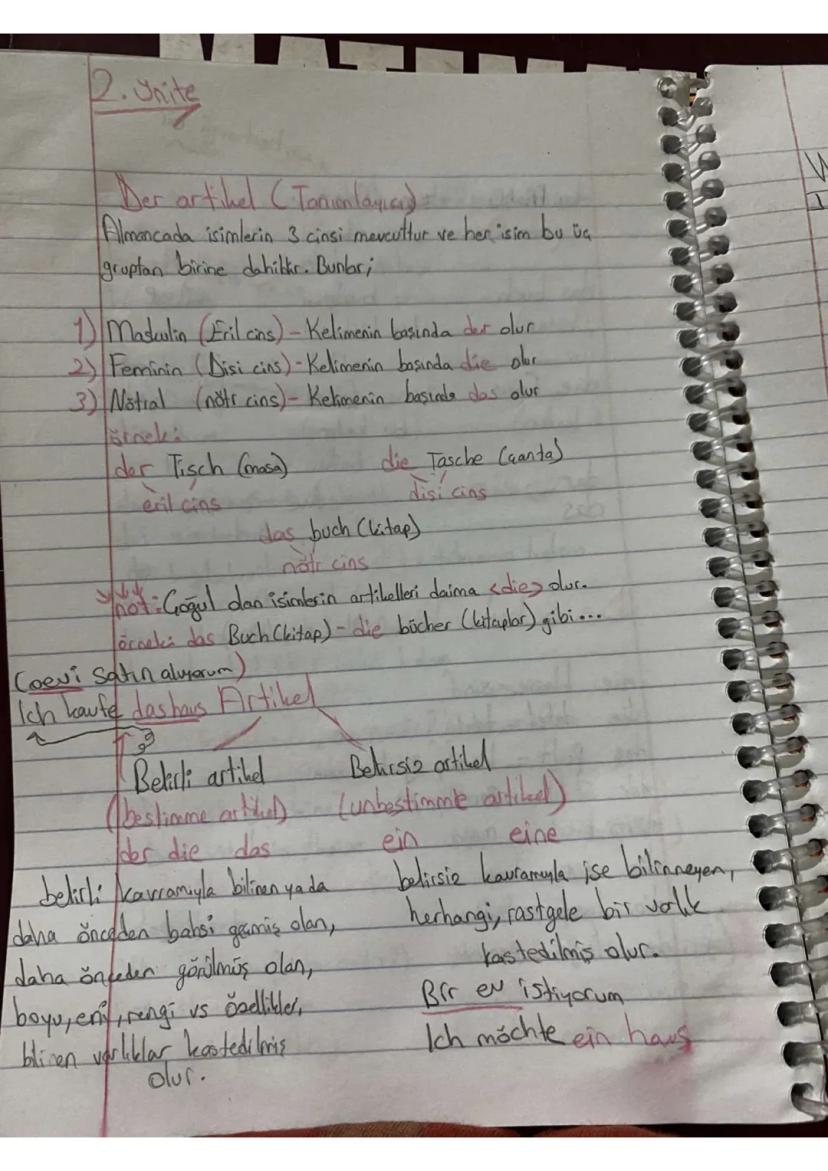 2. ünite
Der artikel (Tanımlayıcı)
Almancada isimlerin 3 cinsi mevcuttur ve her isim bu üç
gruptan birine dahildir. Bunlar;
1) Maskulin (Eril cins) - Kelimenin başında der olur
2) Feminin (Dişi cins) - Kelimenin başında die olur
3) Nötral (nötr cins) - Kelimenin başında das olur
örnek:
der Tisch (masa) die Tasche (çanta)
eril cins dişi cins
das buch (kitap)
nötr cins
not: Çoğul olan isimlerin artikelleri daima <die> olur.
örnek: das Buch (kitap) - die bücher (kitaplar) gibi...
(o evi satın alıyorum)
Ich kaufe das haus Artikel
Belirli artikel Belirsiz artikel
(bestimme artikel) (unbestimmte artikel)
der die das ein eine
belirli kavramıyla bilinen ya da
daha önceden bahsi geçmiş olan,
daha önceden görülmüş olan,
boyu, eni, rengi vs özellikler,
blinen varlıklar kastedilmiş
olur.
belirsiz kavramıyla ise bilinmeyen,
herhangi, rastgele bir varlık
kastedilmiş olur.
Bir ev istiyorum
Ich möchte ein haus